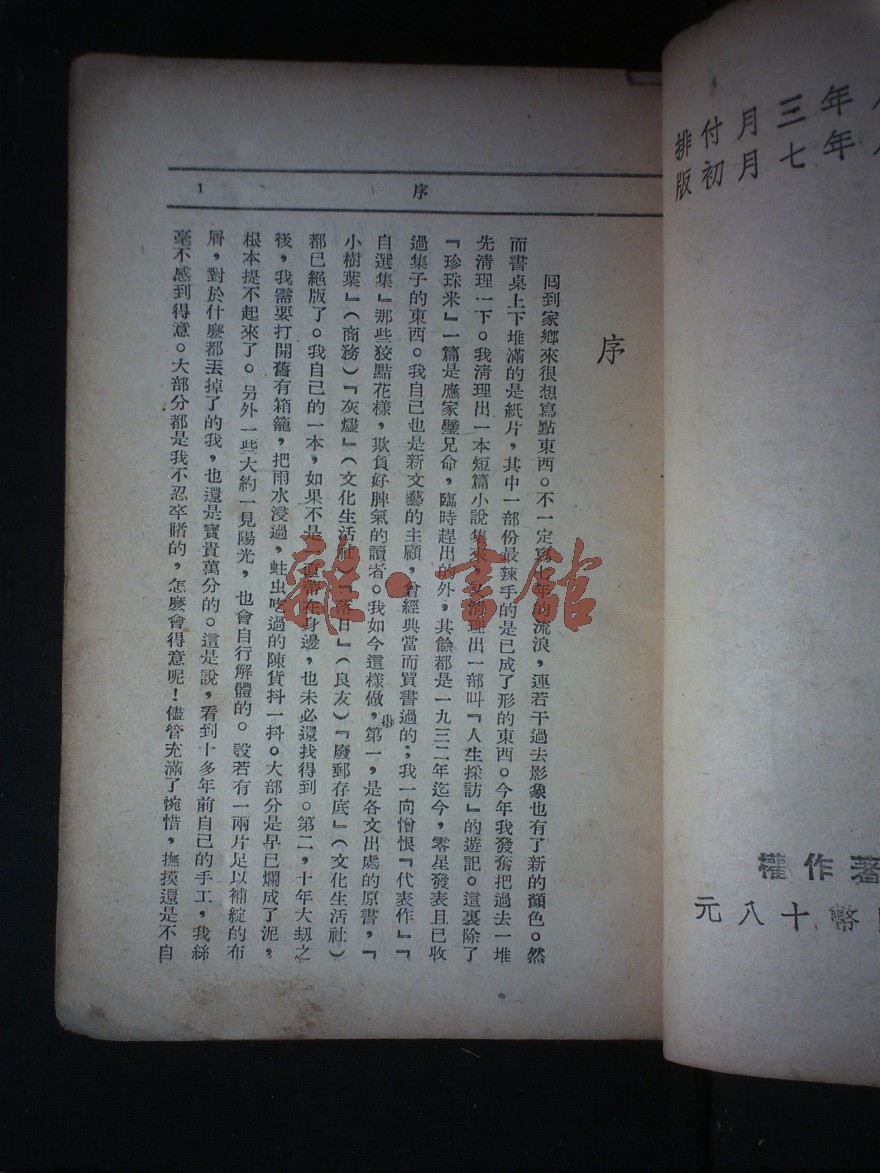 年三月付排
年七月初版
著作權
幣十八元
序
1
序
回到家鄉來很想寫點東西。不一定寫七年的流浪，連若干過去影象也有了新的顏色。然
而書桌上下堆滿的是紙片，其中一部份最辣手的是已成了形的東西。今年我發奮把過去一堆
先清理一下。我清理出一本短篇小說集來，又清理出一部叫『人生採訪』的遊記。這裏除了
『珍珠米』一篇是應家璧兄命，臨時趕出的外，其餘都是一九三二年迄今，零星發表且已收
過集子的東西。我自己也是新文藝的主顧，曾經典當而買書過的；我一向憎恨『代表作』『
自選集』那些狡點花樣，欺負好脾氣的讀者。我如今這樣做，第一，是各文出處的原書，『
小樹葉』（商務）『灰燼』（文化生活社）『落日』（良友）『廢郵存底』（文化生活社）
都已絕版了。我自己的一本，如果不是一直帶在身邊，也未必還找得到。第二，十年大刼之
後，我需要打開舊有箱籠，把雨水浸過，蛀虫吃過的陳貨抖一抖。大部分是早已爛成了泥，
根本提不起來了。另外一些大約一見陽光，也會自行解體的。設若有一兩片足以補綻的布
屑，對於什麼都丟掉了的我，也還是寶貴萬分的。這是說，看到十多年前自己的手工，我絲
毫不感到得意。大部分都是我不忍卒睹的，怎麼會得意呢！儘管充滿了惋惜，撫摸還是不自
雜·書館